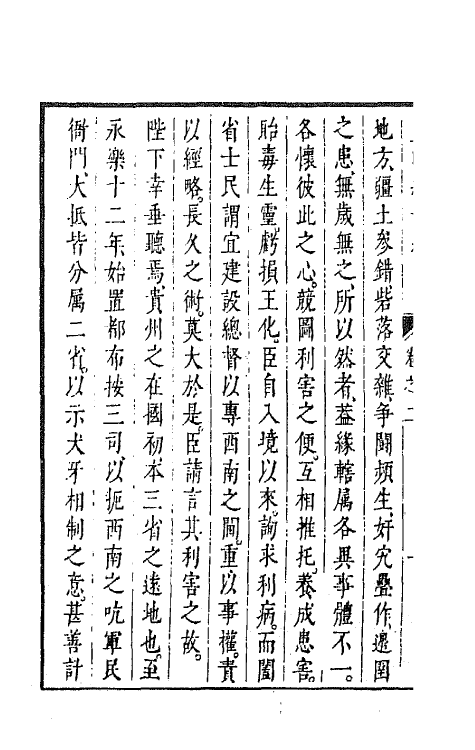 卷之二
地方、疆土參錯、砦落交雜、爭鬪頻生、奸宄疊作、邊圉
之患、無歲無之、所以然者、蓋緣轄属各異、事體不一。
各懷彼此之心。競圖利害之便。互相推托。養成患害。
貽毒生靈。虧損王化。臣自入境以來。詢求利病。而闔
省士民謂宜建設總督以專西南之閫。重以事權。責
以經略。長久之術。莫大於是。臣請言其利害之故。
陛下幸垂聽焉。貴州之在國初本三省之遠地也。至
永樂十二年、始置都布按三司、以扼西南之吭、軍民
衙門、大抵皆分属二省。以示犬牙相制之意。甚善計